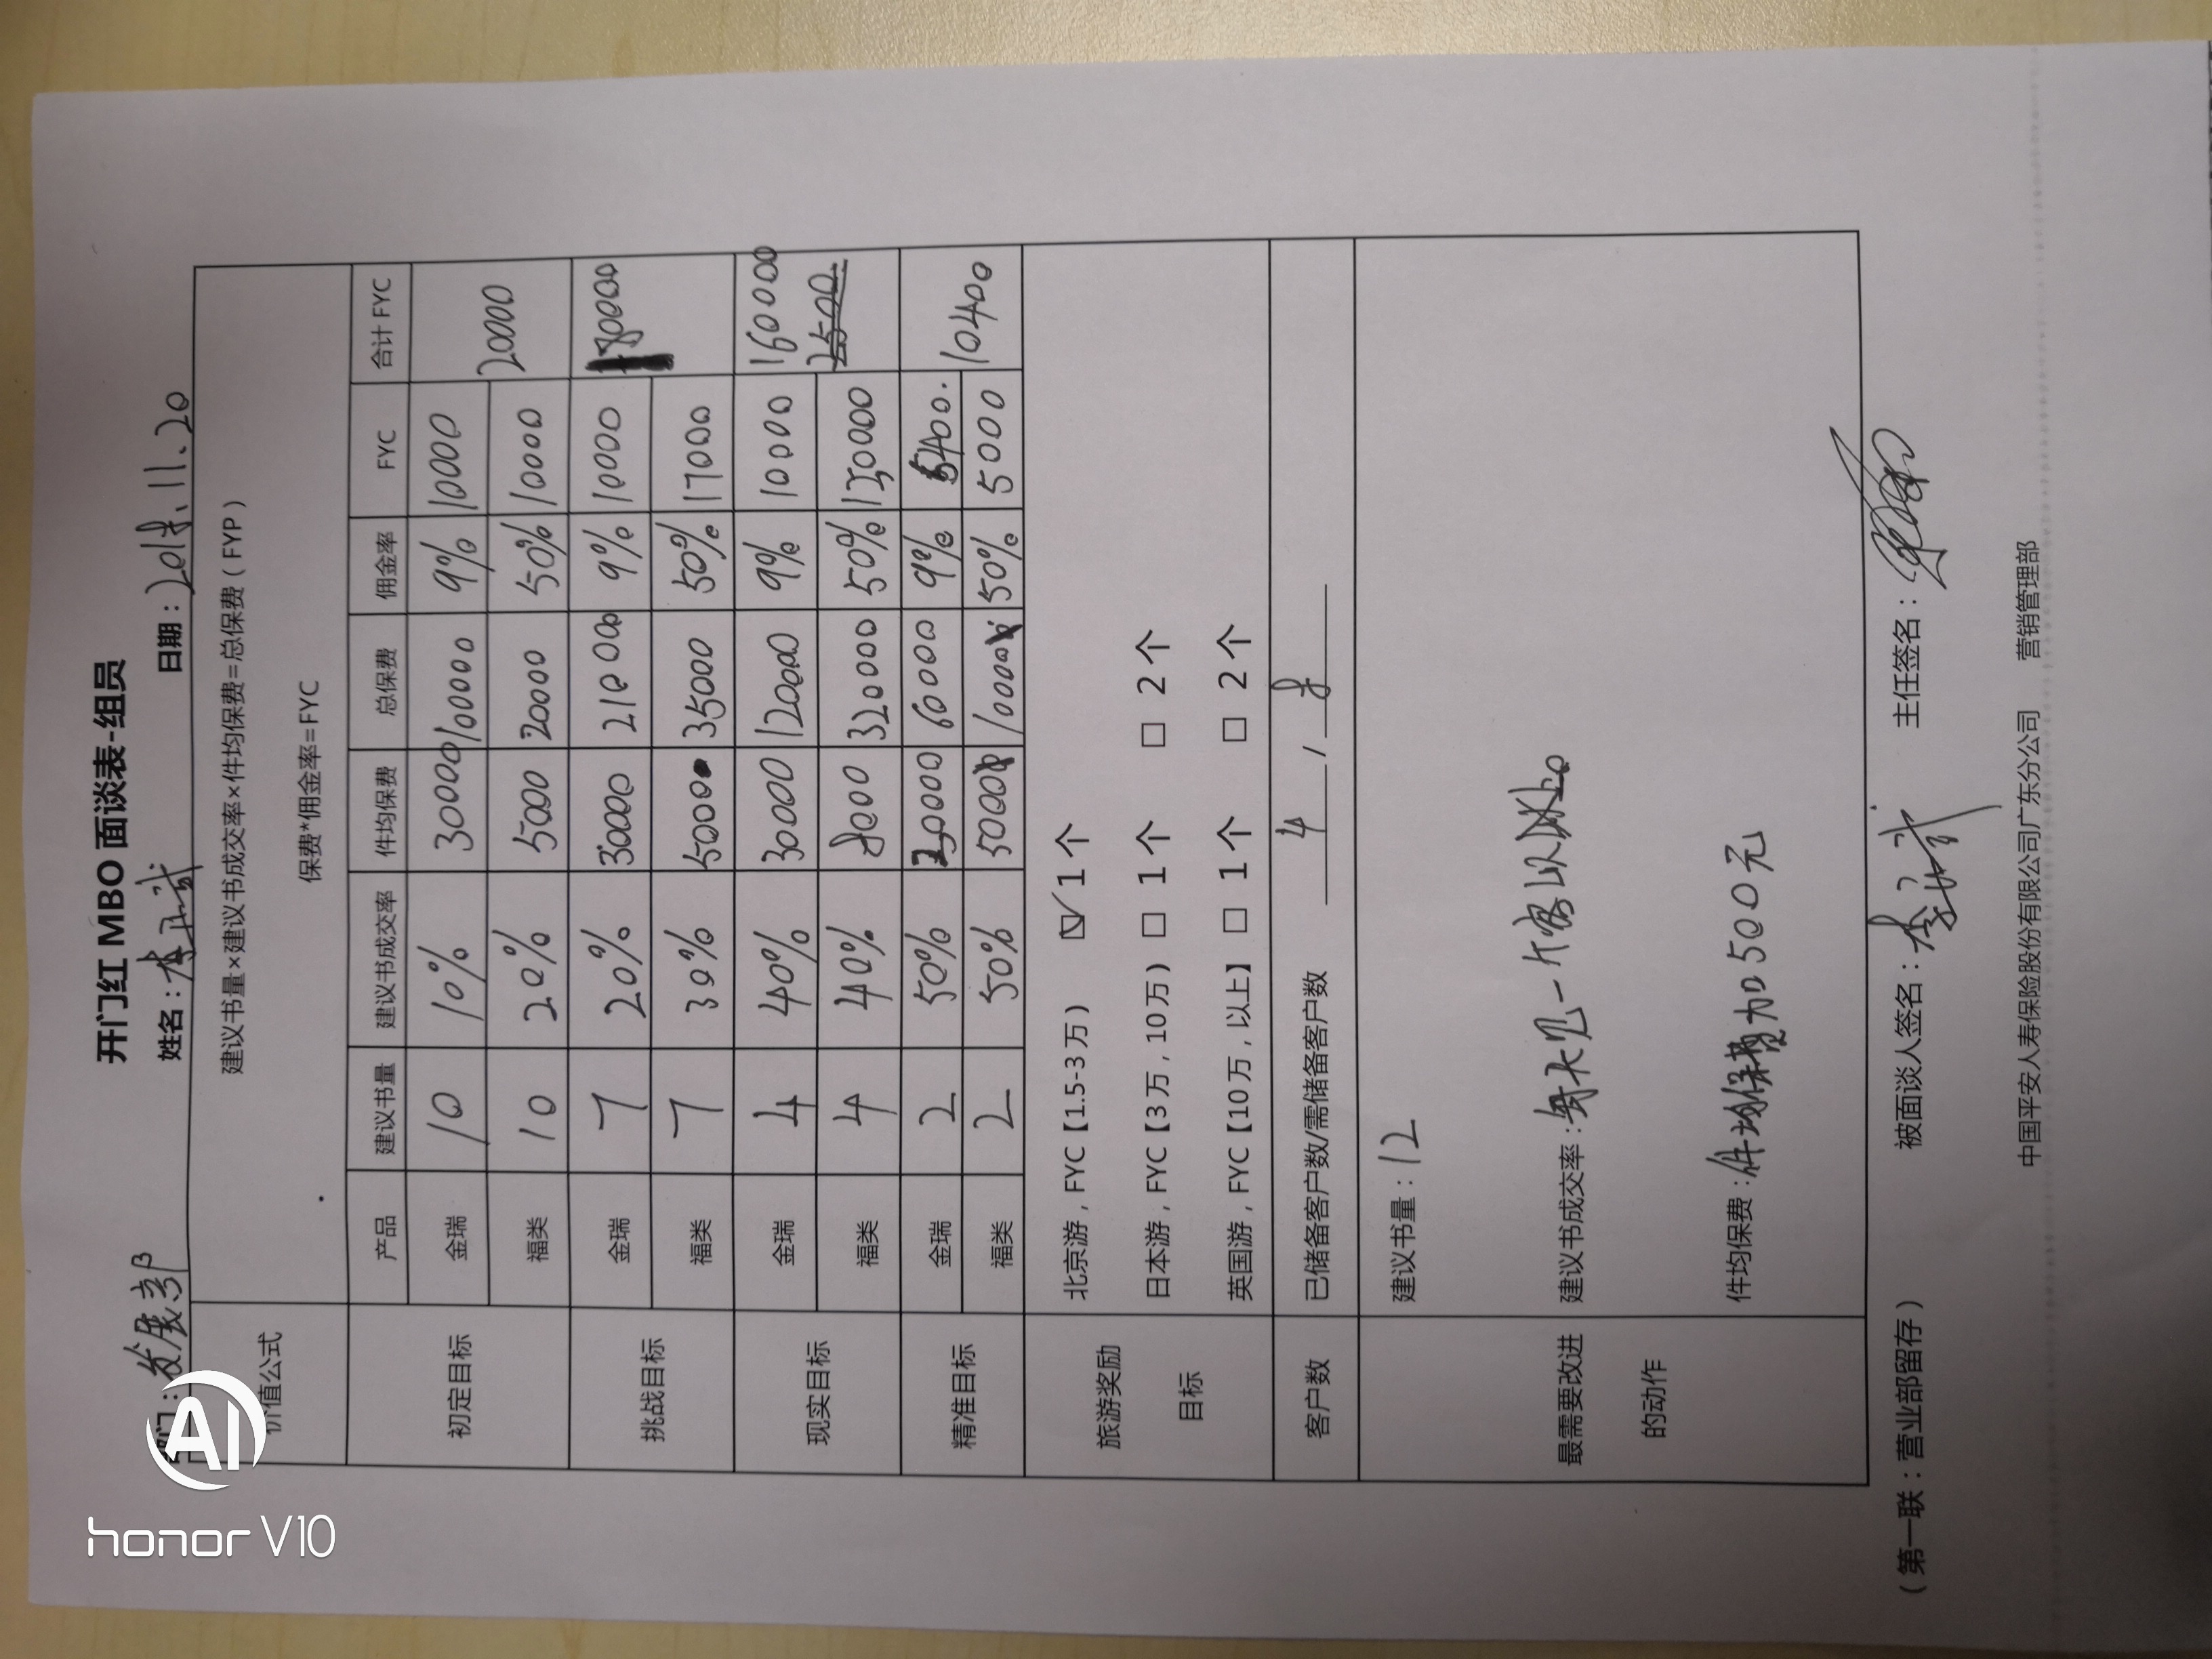 开门红 MBO 面谈表-组员
部门：发展部 姓名：李正武 日期：2018.11.20
价值公式 建议书量×建议书成交率×件均保费=总保费（FYP）
保费*佣金率=FYC
产品 建议书量 建议书成交率 件均保费 总保费 佣金率 FYC 合计 FYC
初定目标 金瑞 10 10% 30000 100000 9% 10000 20000
福类 10 20% 5000 20000 50% 10000
挑战目标 金瑞 7 20% 30000 210000 9% 10000
福类 7 30% 5000 35000 50% 17000
现实目标 金瑞 4 40% 30000 12000 9% 10000 160000
福类 4 40% 8000 32000 50% 150000 2500
精准目标 金瑞 2 50% 20000 60000 9% 5400 10400
福类 2 50% 5000 10000 50% 5000
旅游奖励目标 北京游，FYC【1.5-3万） ☑ 1个
日本游，FYC【3万，10万） □ 1个 □ 2个
英国游，FYC【10万，以上】 □ 1个 □ 2个
客户数 已储备客户数/需储备客户数 4 / 8
最需要改进的动作 建议书量：12
建议书成交率：每天见一个客以
件均保费：件均保费加500元
（第一联：营业部留存） 被面谈人签名： 主任签名：
中国平安人寿保险股份有限公司广东分公司 营销管理部
AI
honor V10